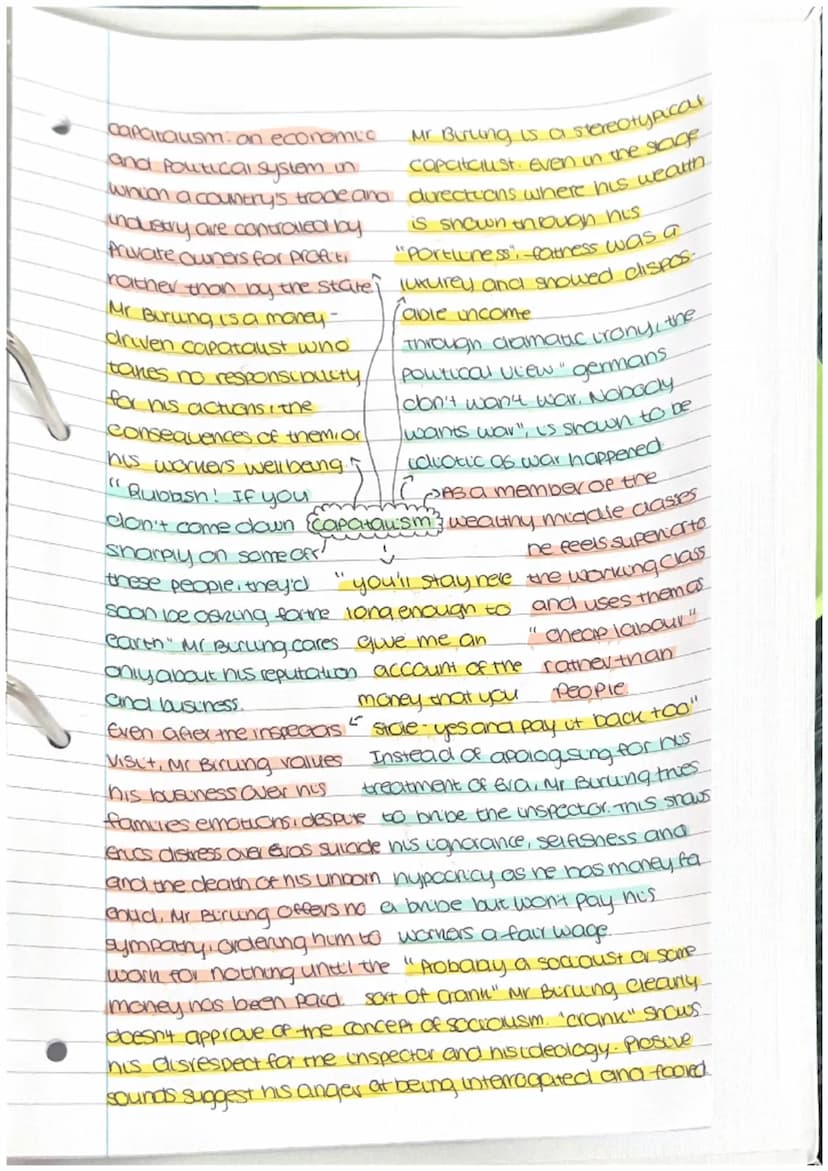 capatalism: an economic
and political system in
which a country's trade and
industry are controlled by
private owners for profit,
rather than by the state
Mr Birling is a money-
driven capatalist who
takes no responsibility
for his actions, the
consequences of them, or
his workers wellbeing
"Rubbish! If you
don't come down
sharply on some of
these people, they'd
soon be asking for the
earth" Mr Birling cares
only about his reputation
and business.
Mr Birling is a stereotypical
capitalist. Even in the stage
directions where his wealth
is shown through his
"Portliness", fatness was a
luxurey and showed dispos-
able income
Through dramatic irony, the
political view "germans
don't want war. Nobody
wants war", is shown to be
idiotic as war happened
capatalism
As a member of the
wealthy middle classes
he feels superior to
the working class
and uses them as
"cheap labour"
rather than
people
"you'll stay here
long enough to
give me an
account of the
money that you
stole - yes and pay it back too"
Even after the inspectors
visit, Mr Birling values
his business over his
families emotions, despite
erics distress over evas suicide
and the death of his unborn
child, Mr Birling offers no
sympathy, ordering him to
work for nothing until the
money has been paid.
Instead of apologising for his
treatment of Eva, Mr Birling tries
to bribe the inspector. This shows
his ignorance, selfishness and
hypocricy as he has money for
a bribe but won't pay his
workers a fair wage
"Probably a socialist or some
sort of crank" Mr Birling clearly
doesn't approve of the concept of socialism. "crank" shows
his disrespect for the inspector and his ideology. Plosive
sounds suggest his anger at being interrogated and fooled